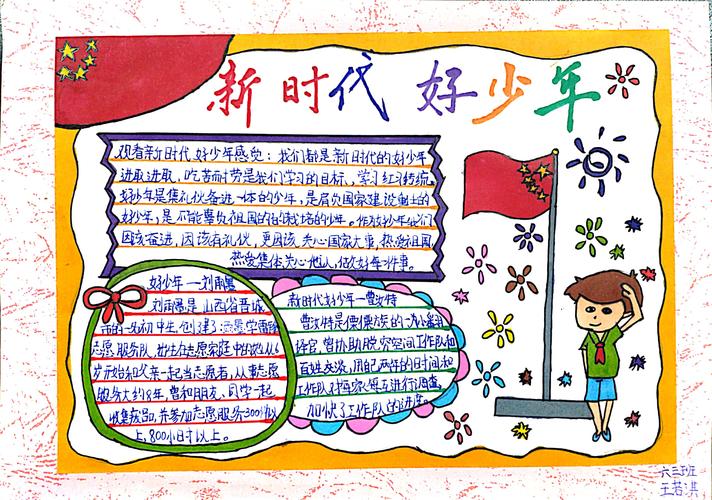 新时代 好少年
观看新时代好少年感觉：我们都是新时代的好少年
进取进取，吃苦耐劳是我们学习的目标，学习红习传统，
好少年是集礼仪备进一体的少年，是肩负国家建设制土的
好少年，是不能辜负祖国的的栽培的少年。作为好少年我们
因该奋进，因该有礼仪，更因该关心国家大事，热爱祖国
热爱集体，关心他人，做好每一件事。
好少年——刘雨墨
刘雨墨是山西省晋城
市的一名初中生，创建了雨墨学雷锋
志愿服务队，出生在志愿家庭中的她从6
岁开始和父亲一起当志愿者，从事志愿
服务大约8年，曾和朋友、同学一起
收集药品，并参加志愿服务300次以
上，800小时以上。
新时代好少年—曹汝特
曹汝特是傈僳族的一次小翻
译官，曾协助脱空空间工作队和
百姓交流，用自己两年的日时间和
工作队对百家进行调查，
加快了工作队的进度。
六三班
王若淇